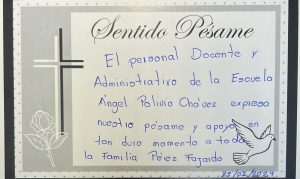 Sentido Pésame
El personal Docente y
Administrativo de la Escuela
Ángel Polivio Chávez expresa
nuestro pésame y apoyo en
tan duro momento a toda
la Familia Pérez Fajardo